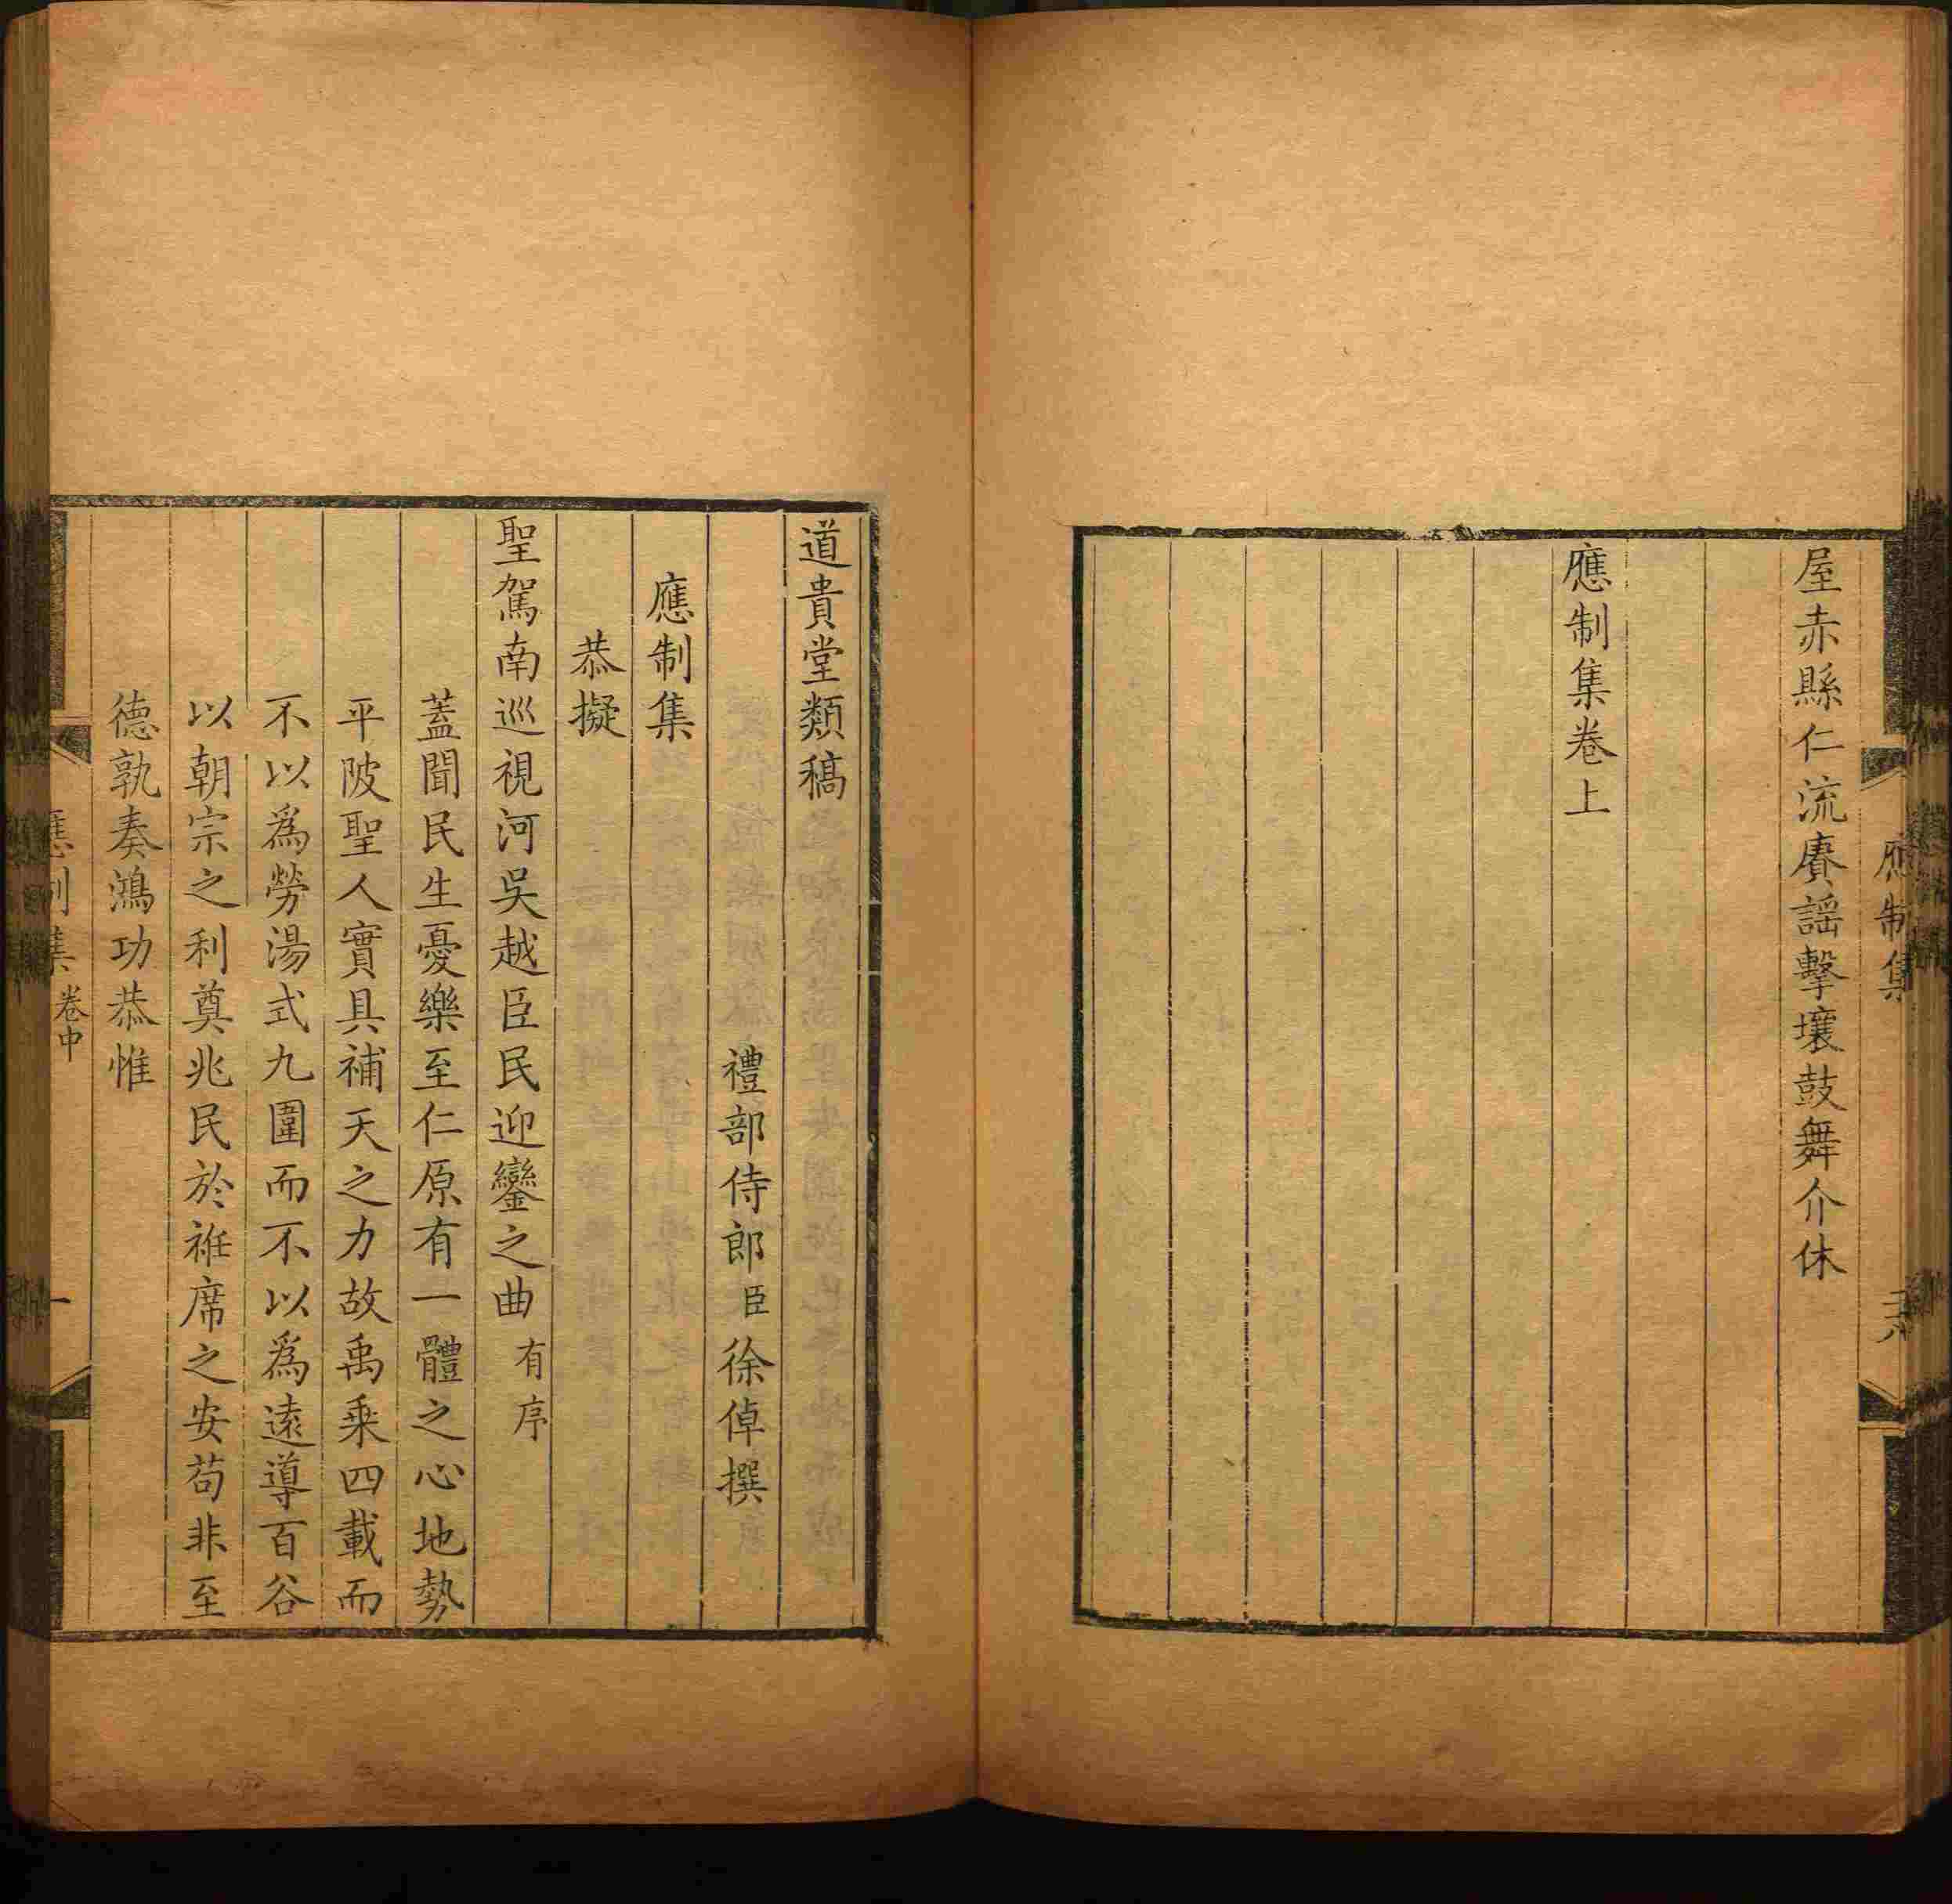 屋赤縣仁流賡謡擊壤鼓舞介休
應制集卷上
應制集
道貴堂類稿
禮部侍郎臣徐倬撰
應制集
恭擬
聖駕南巡視河吳越臣民迎鑾之曲有序
蓋聞民生憂樂至仁原有一體之心地勢
平陂聖人實具補天之力故禹乘四載而
不以爲勞湯式九圍而不以爲遠導百谷
以朝宗之利奠兆民於袵席之安苟非至
德孰奏鴻功恭惟
應制集 卷中 一